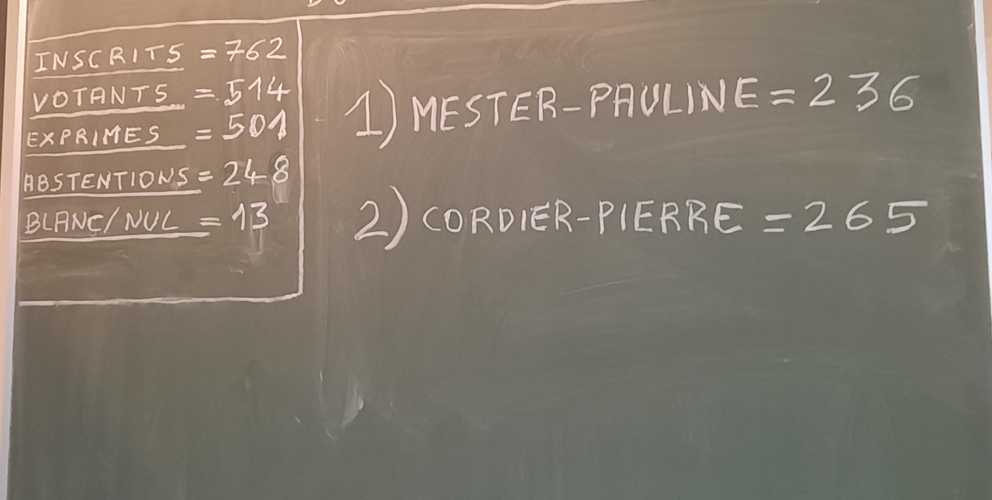 INSCRITS = 762
VOTANTS = 514
EXPRIMES = 501
ABSTENTIONS = 248
BLANC/NUL = 13
1) MESTER-PAULINE = 236
2) CORDIER-PIERRE = 265